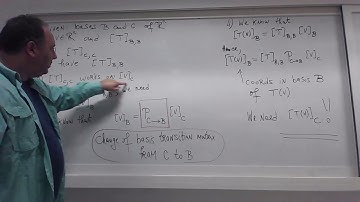 bases B and C of R²
[T]B,B
[T]C,C
have [T]B,B
[T]C,C works on [V]C
need
that [V]B = P C→B [V]C
Change of basis transition matrix
from C to B
We know that
[T(V)]B = [T]B,B [V]B
Hence,
[T(V)]B = [T]B,B P C→B [V]C
Coords in basis B
of T(V)
We Need [T(V)]C !!